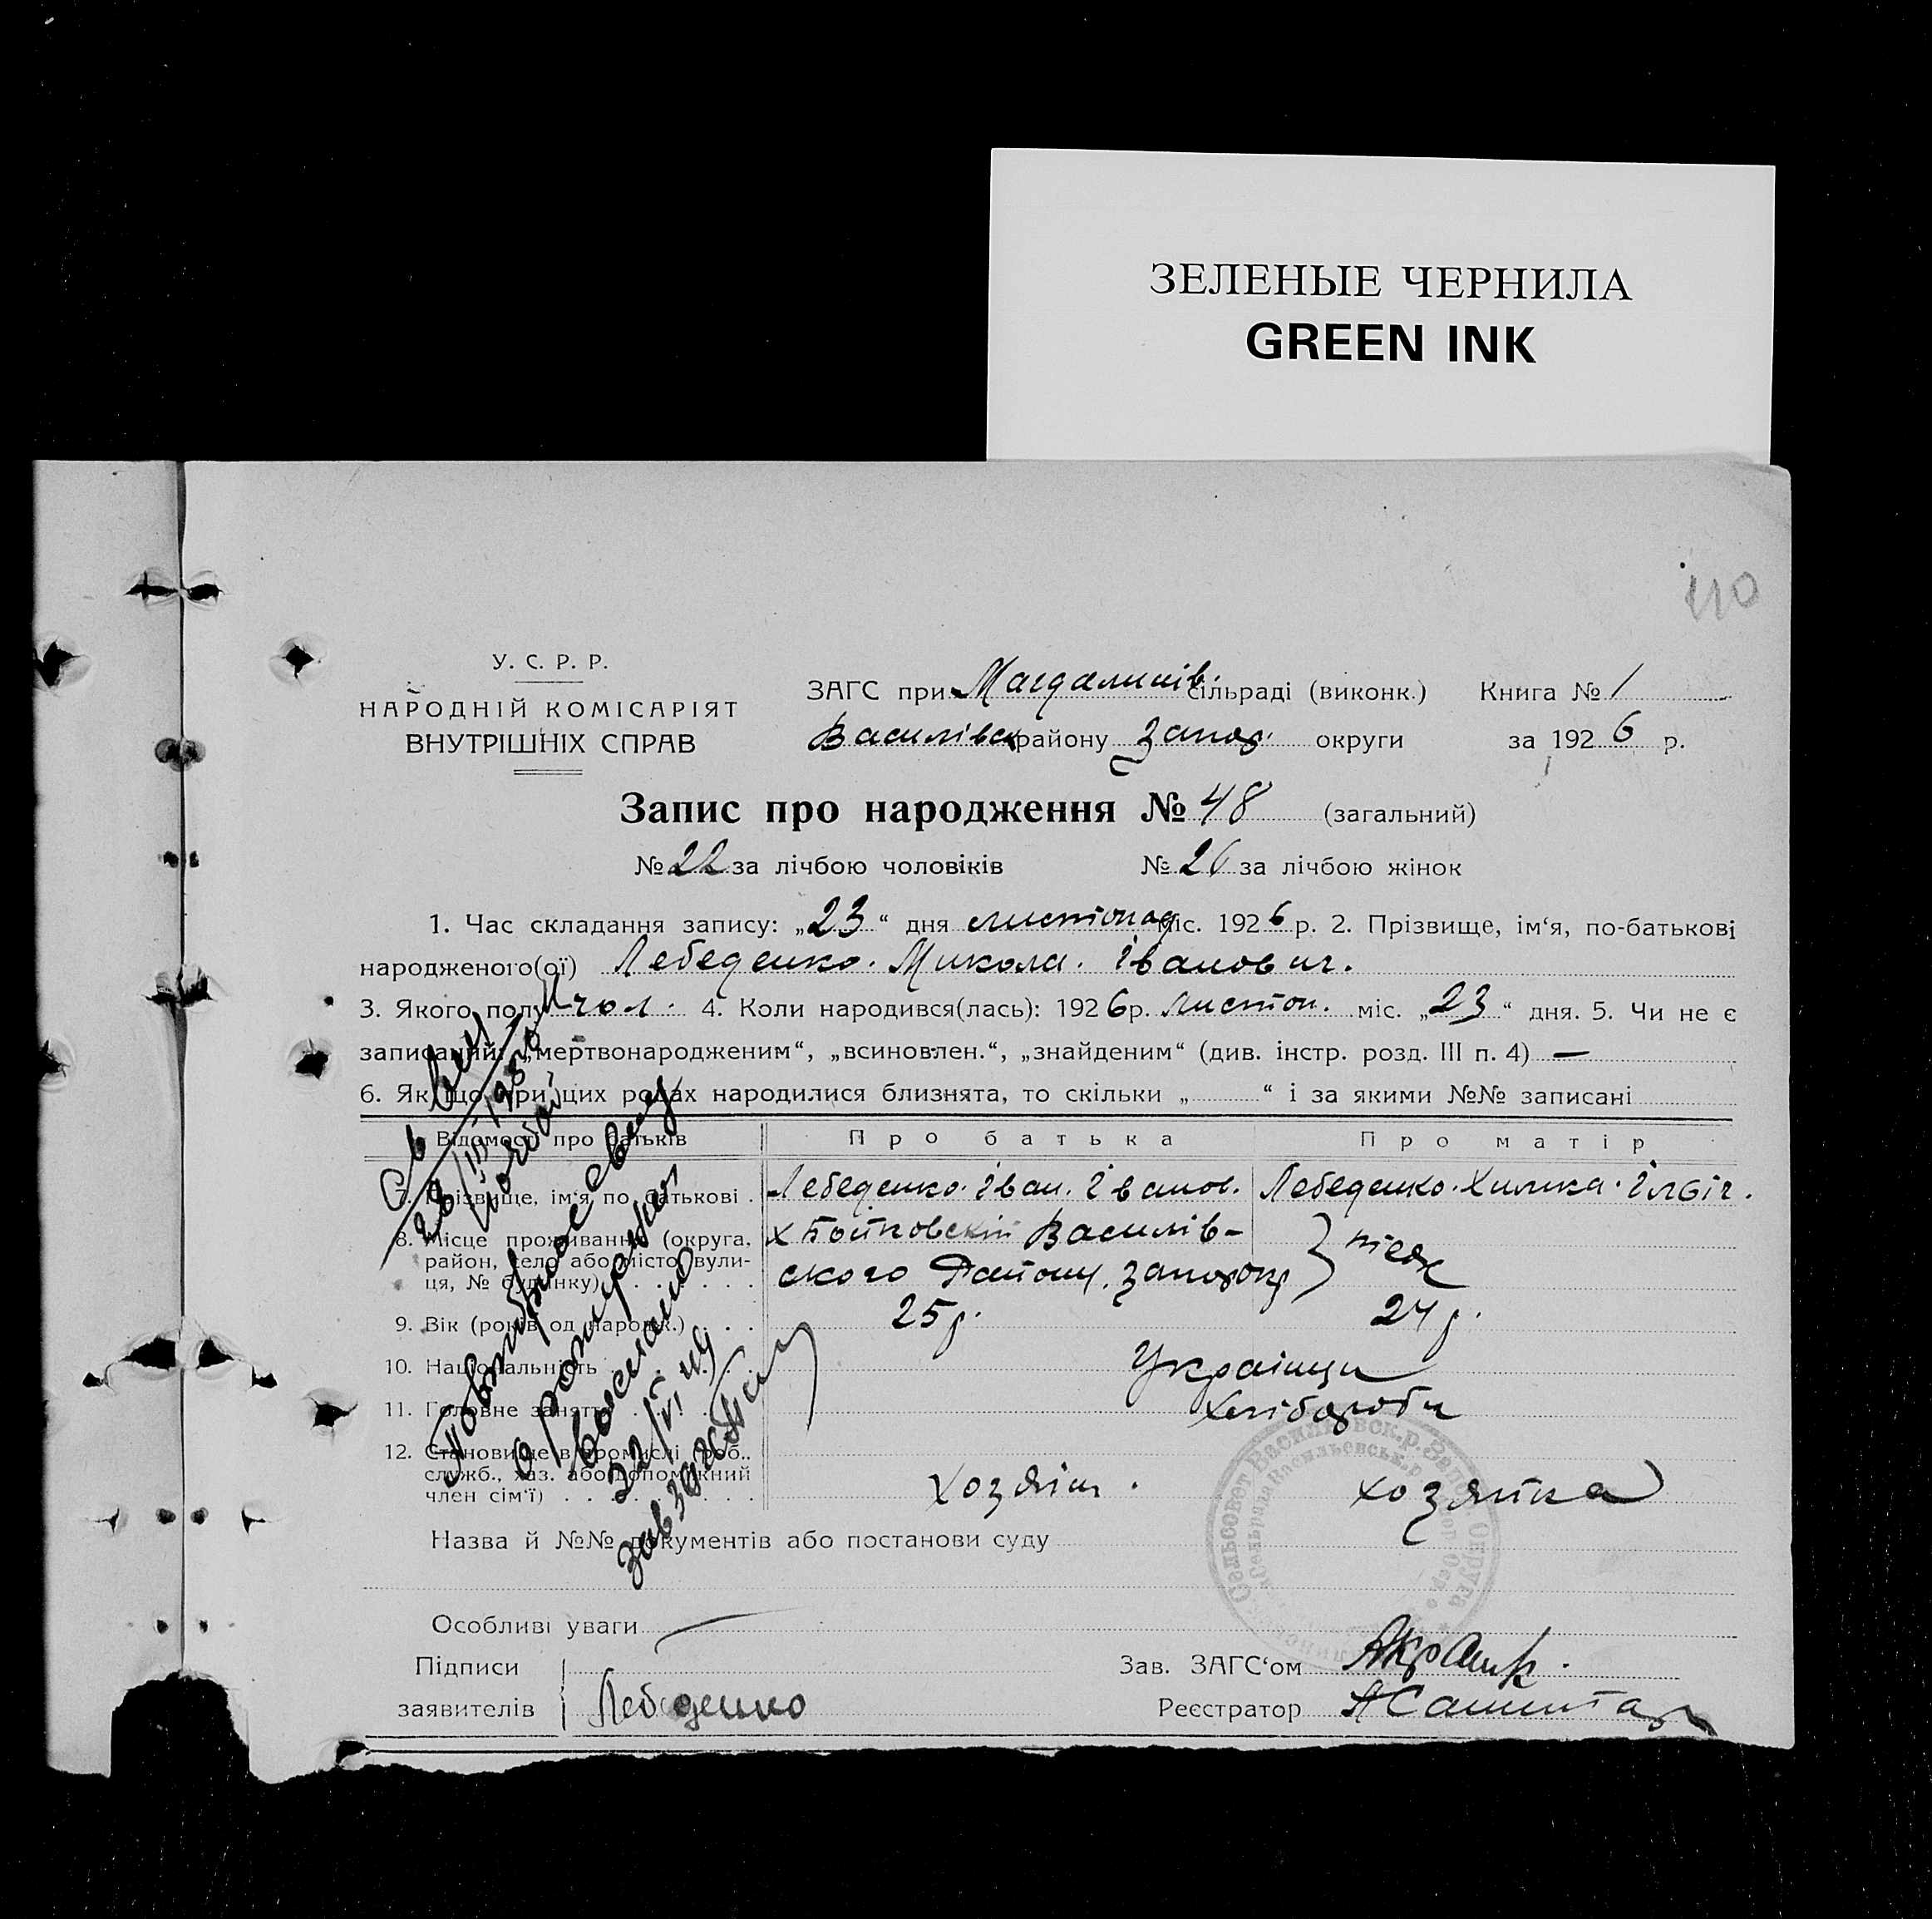 ЗЕЛЕНЫЕ ЧЕРНИЛА
GREEN INK
110
У. С. Р. Р.
НАРОДНІЙ КОМІСАРІЯТ
ВНУТРІШНІХ СПРАВ
ЗАГС при Магдалинів. сільраді (виконк.) Книга № 1
Василівск району Запор. округи за 1926 р.
Запис про народження № 48 (загальний)
№ 22 за лічбою чоловіків № 26 за лічбою жінок
1. Час складання запису: „23“ дня листопад міс. 1926 р. 2. Прізвище, ім‘я, по-батькові
народженого(ої) Лебеденко. Микола. Іванович.
3. Якого полу чол. 4. Коли народився(лась): 1926 р. Листоп. міс. „23“ дня. 5. Чи не є
записаний: „мертвонародженим“, „всиновлен.“, „знайденим“ (див. інстр. розд. III п. 4) —
6. Як що при цих родах народилися близнята, то скільки „ “ і за якими №№ записані
Відомості про батьків Про батька Про матір
7. Прізвище, ім‘я, по батькові . Лебеденко. Іван. Іванов. Лебеденко.
8. Місце проживання (округа, район, село або місто, вули-ця, № будинку) х Василів-
ского Району.
9. Вік (років од народж.) . . . 25 р. 24 р.
10. Національність Українци
11. Головне заняття Хлібороби
12. Становище в промислі (роб., служб., хаз. або допоміжний член сім‘ї) Хозяін. хозяйка
Назва й №№ документів або постанови суду
Особливі уваги
Підписи
заявителів Лебеденко
Зав. ЗАГС‘ом
Реєстратор
Повторное свид
о рождении
выслано